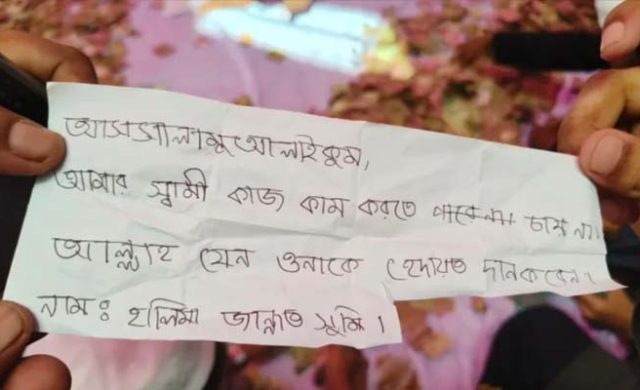 আসসালামু আলাইকুম,
আমার স্বামী কাজ কাম করতে চায় না।
আল্লাহ যেন ওনাকে হেদায়ত দান করেন।
নামঃ হালিমা জান্নাত সুমি।